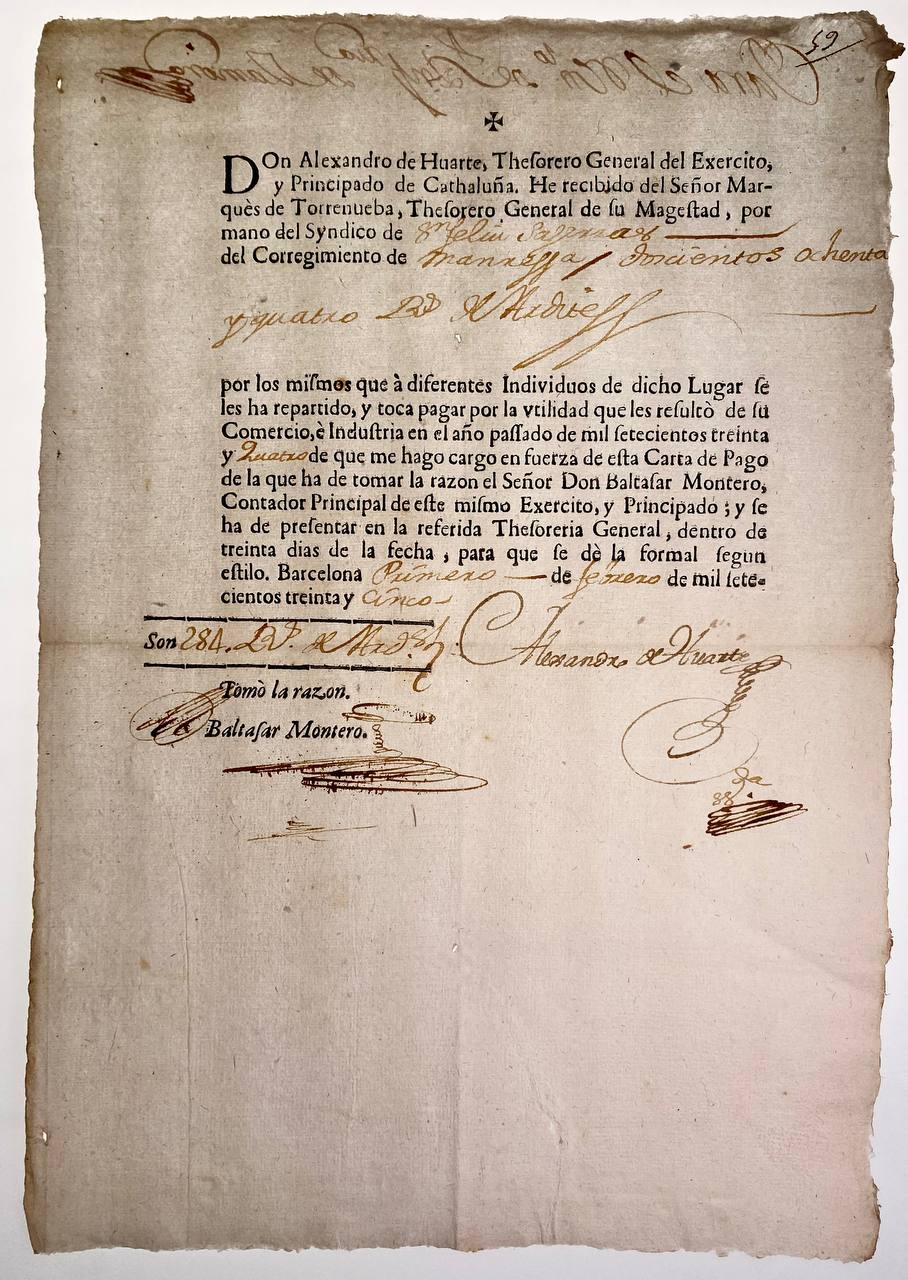 59
✠
DOn Alexandro de Huarte, Theſorero General del Exercito,
y Principado de Cathaluña. He recibido del Señor Mar-
quès de Torrenueba, Theſorero General de ſu Mageſtad, por
mano del Syndico de Sn feliu Saserras
del Corregimiento de Manressa / Doscientos ochenta
y quatro Rs. de Ardites
por los miſmos que à diferentes Individuos de dicho Lugar ſe
les ha repartido, y toca pagar por la vtilidad que les reſultò de ſu
Comercio, è Induſtria en el año paſſado de mil ſetecientos treinta
y Quatro de que me hago cargo en fuerza de eſta Carta de Pago
de la que ha de tomar la razon el Señor Don Baltaſar Montero,
Contador Principal de eſte miſmo Exercito, y Principado ; y ſe
ha de preſentar en la referida Theſoreria General, dentro de
treinta dias de la fecha, para que ſe dè la formal ſegun
eſtilo. Barcelona Primero — de febrero de mil ſete-
cientos treinta y Cinco
Son 284. Rs. de Ards. Alexandro de Huarte
Tomò la razon.
Baltaſar Montero.